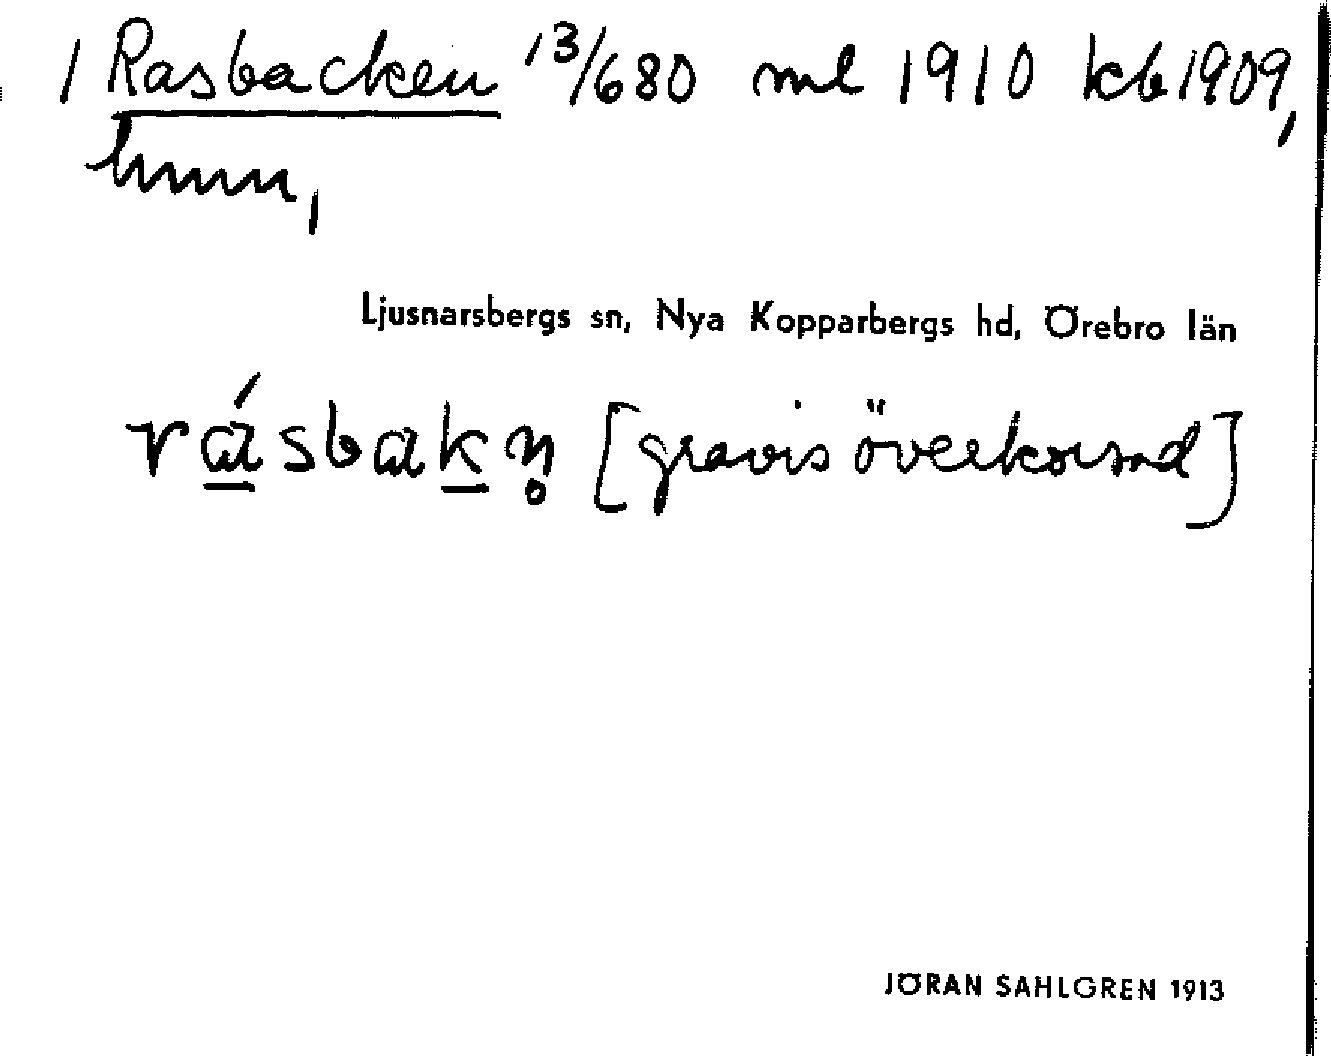 1 Rasbacken 13/680 ml 1910 kb 1909,
hmn,
Ljusnarsbergs sn, Nya Kopparbergs hd, Örebro län
rásbakn̥ [gravis överkorsad]
JÖRAN SAHLGREN 1913